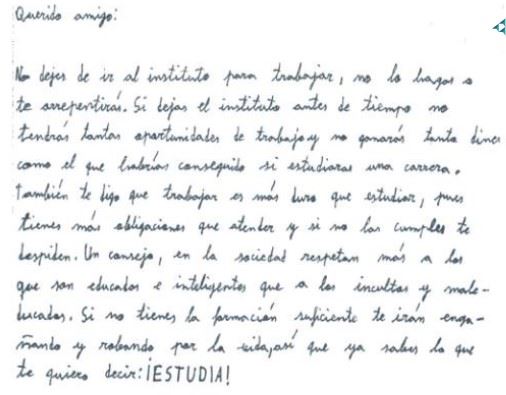 Querido amigo:
No dejes de ir al instituto para trabajar, no lo hagas o
te arrepentirás. Si dejas el instituto antes de tiempo no
tendrás tantas oportunidades de trabajo y no ganarás tanto diner
como el que habrías conseguido si estudiaras una carrera.
También te digo que trabajar es más duro que estudiar, pues
tienes más obligaciones que atender y si no las cumples te
despiden. Un consejo, en la sociedad respetan más a los
que son educados e inteligentes que a los incultos y male-
ducados. Si no tienes la formación suficiente te irán enga-
ñando y robando por la vida, así que ya sabes lo que
te quiero decir: ¡ESTUDIA!